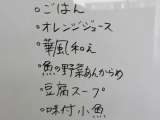 ・ごはん
・オレンジジュース
・華風和え
・魚の野菜あんからめ
・豆腐スープ
・味付小魚